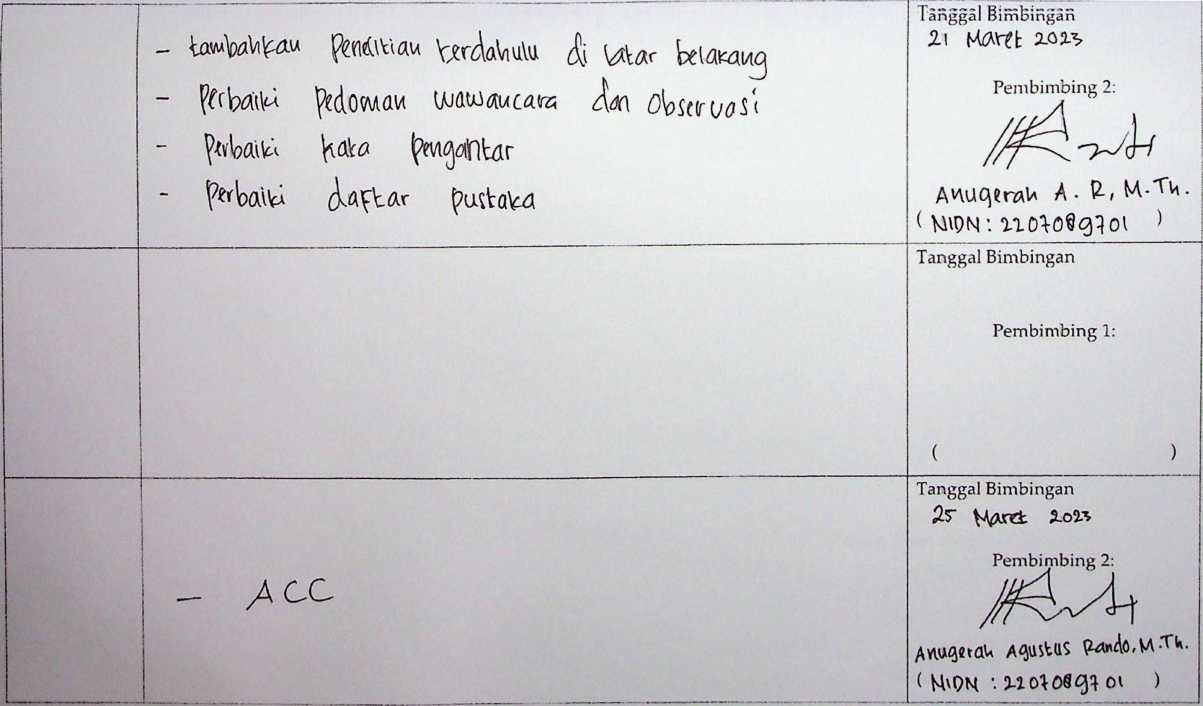 - tambahkan Penelitian terdahulu di latar belakang
- Perbaiki Pedoman wawancara dan Observasi
- Perbaiki kata pengantar
- Perbaiki daftar pustaka
Tanggal Bimbingan
21 Maret 2023
Pembimbing 2:
Anugerah A. R, M.Th.
(NIDN : 2207089701 )
Tanggal Bimbingan
Pembimbing 1:
( )
- ACC
Tanggal Bimbingan
25 Maret 2023
Pembimbing 2:
Anugerah Agustus Rando, M.Th.
(NIDN : 2207089701 )